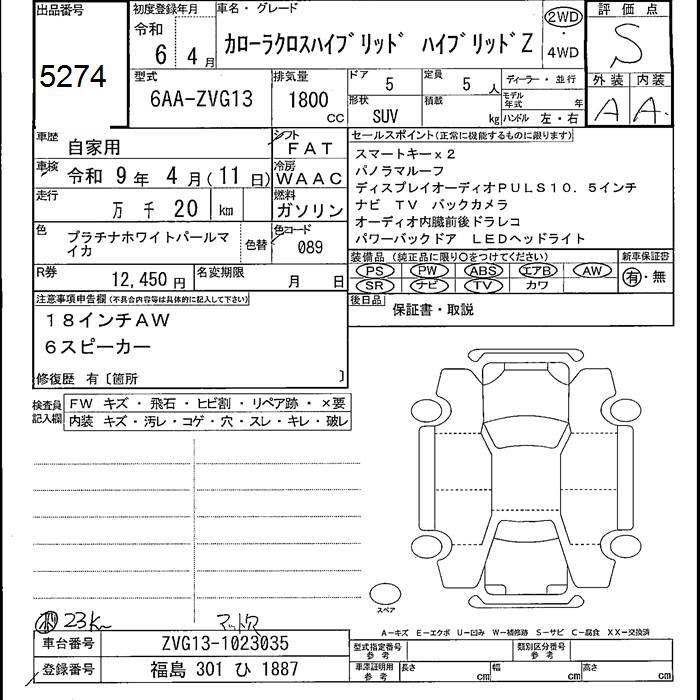 出品番号
5274
初度登録年月
令和
6 4 月
車名・グレード
カローラクロスハイブリッド ハイブリッドZ
2WD
・
4WD
評価点
S
外装 内装
A A
型式
6AA-ZVG13
排気量
1800
CC
ドア
5
定員
5 人
ディーラー・並行
形状
SUV
積載
kg
モデル年式 年
ハンドル 左・右
車歴
自家用
シフト
FAT
車検
令和 9 年 4 月(11 日)
冷房
WAAC
走行
万 千 20 km
燃料
ガソリン
色
プラチナホワイトパールマイカ
色替
色コード
089
R券
12,450 円
名変期限
月 日
セールスポイント(正常に機能するものに限ります)
スマートキーx2
パノラマルーフ
ディスプレイオーディオPULS10.5インチ
ナビ TV バックカメラ
オーディオ内臓前後ドラレコ
パワーバックドア LEDヘッドライト
装備品 (純正品に限り○をつけてください)
PS PW ABS エアB AW
SR ナビ TV カワ
新車保証書
有・無
後日品
保証書・取説
注意事項申告欄(不具合内容等は具体的に記入して下さい)
18インチAW
6スピーカー
修復歴 有〔箇所 〕
検査員記入欄
FW キズ・飛石・ヒビ割・リペア跡・×要
内装 キズ・汚レ・コゲ・穴・スレ・キレ・破レ
スペア
23km
マット穴
A-キズ E-エクボ U-凹み W-補修跡 S-サビ C-腐食 XX-交換済
車台番号
ZVG13-1023035
登録番号
福島 301 ひ 1887
型式指定番号
参考
類別区分番号
参考
車庫証明用
参考
長さ cm 幅 cm 高さ cm